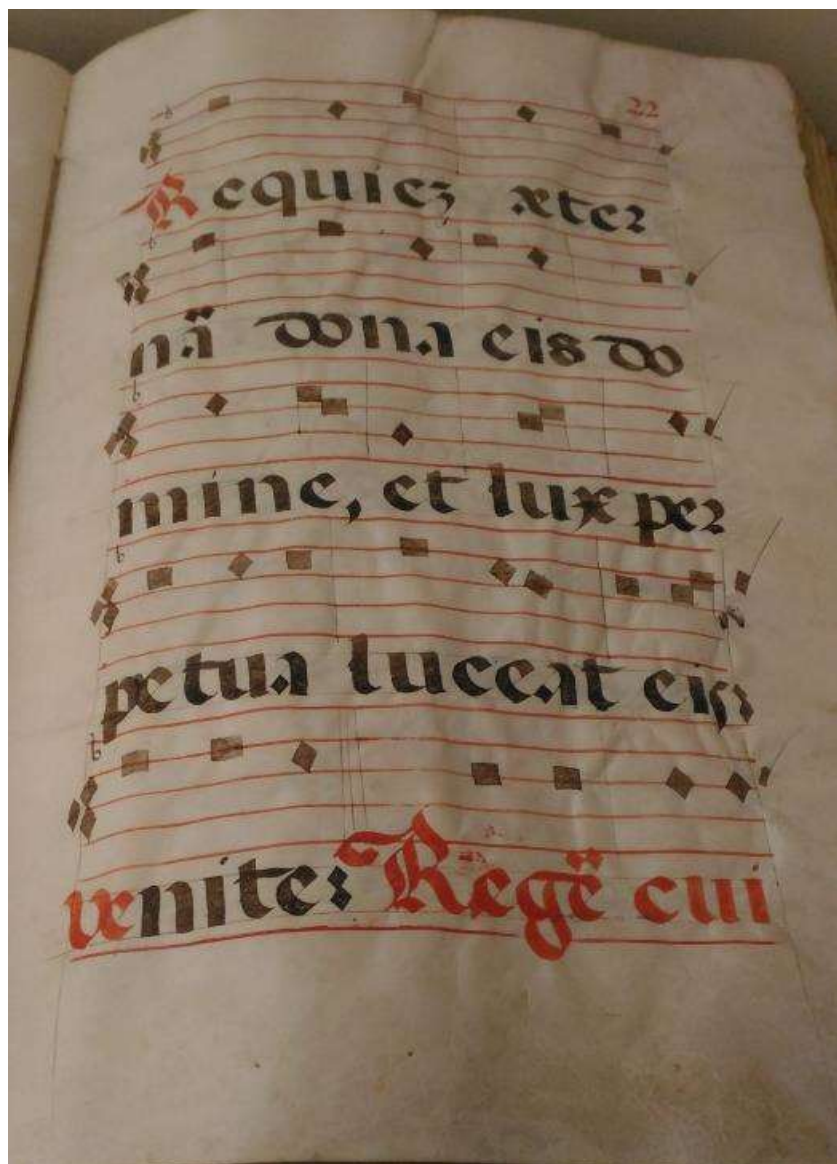 22
Requiez æter
nã dona eis do
mine, et lux per
petua luceat eis:
venite: Regẽ cui